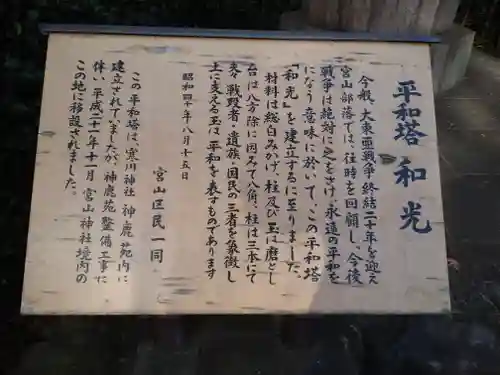 平和塔 和光
今般、大東亜戦争終結二十年を迎え
宮山部落では、往時を回顧し、今後
戦争は絶対に之をさけ、永遠の平和を
になう意味に於いて、この平和塔
「和光」を建立するに至りました。
材料は総白みかげ、柱及び玉は磨とし
台は八方除に因みて八角、柱は三本にて
夫々戦歿者・遺族・国民の三者を象徴し
上に支える玉は平和を表すものであります
昭和四十年八月十五日
宮山区民一同
この平和塔は、寒川神社 神鹿苑内に
建立されていましたが、神鹿苑整備工事に
伴い、平成二十一年十一月 宮山神社境内の
この地に移設されました。